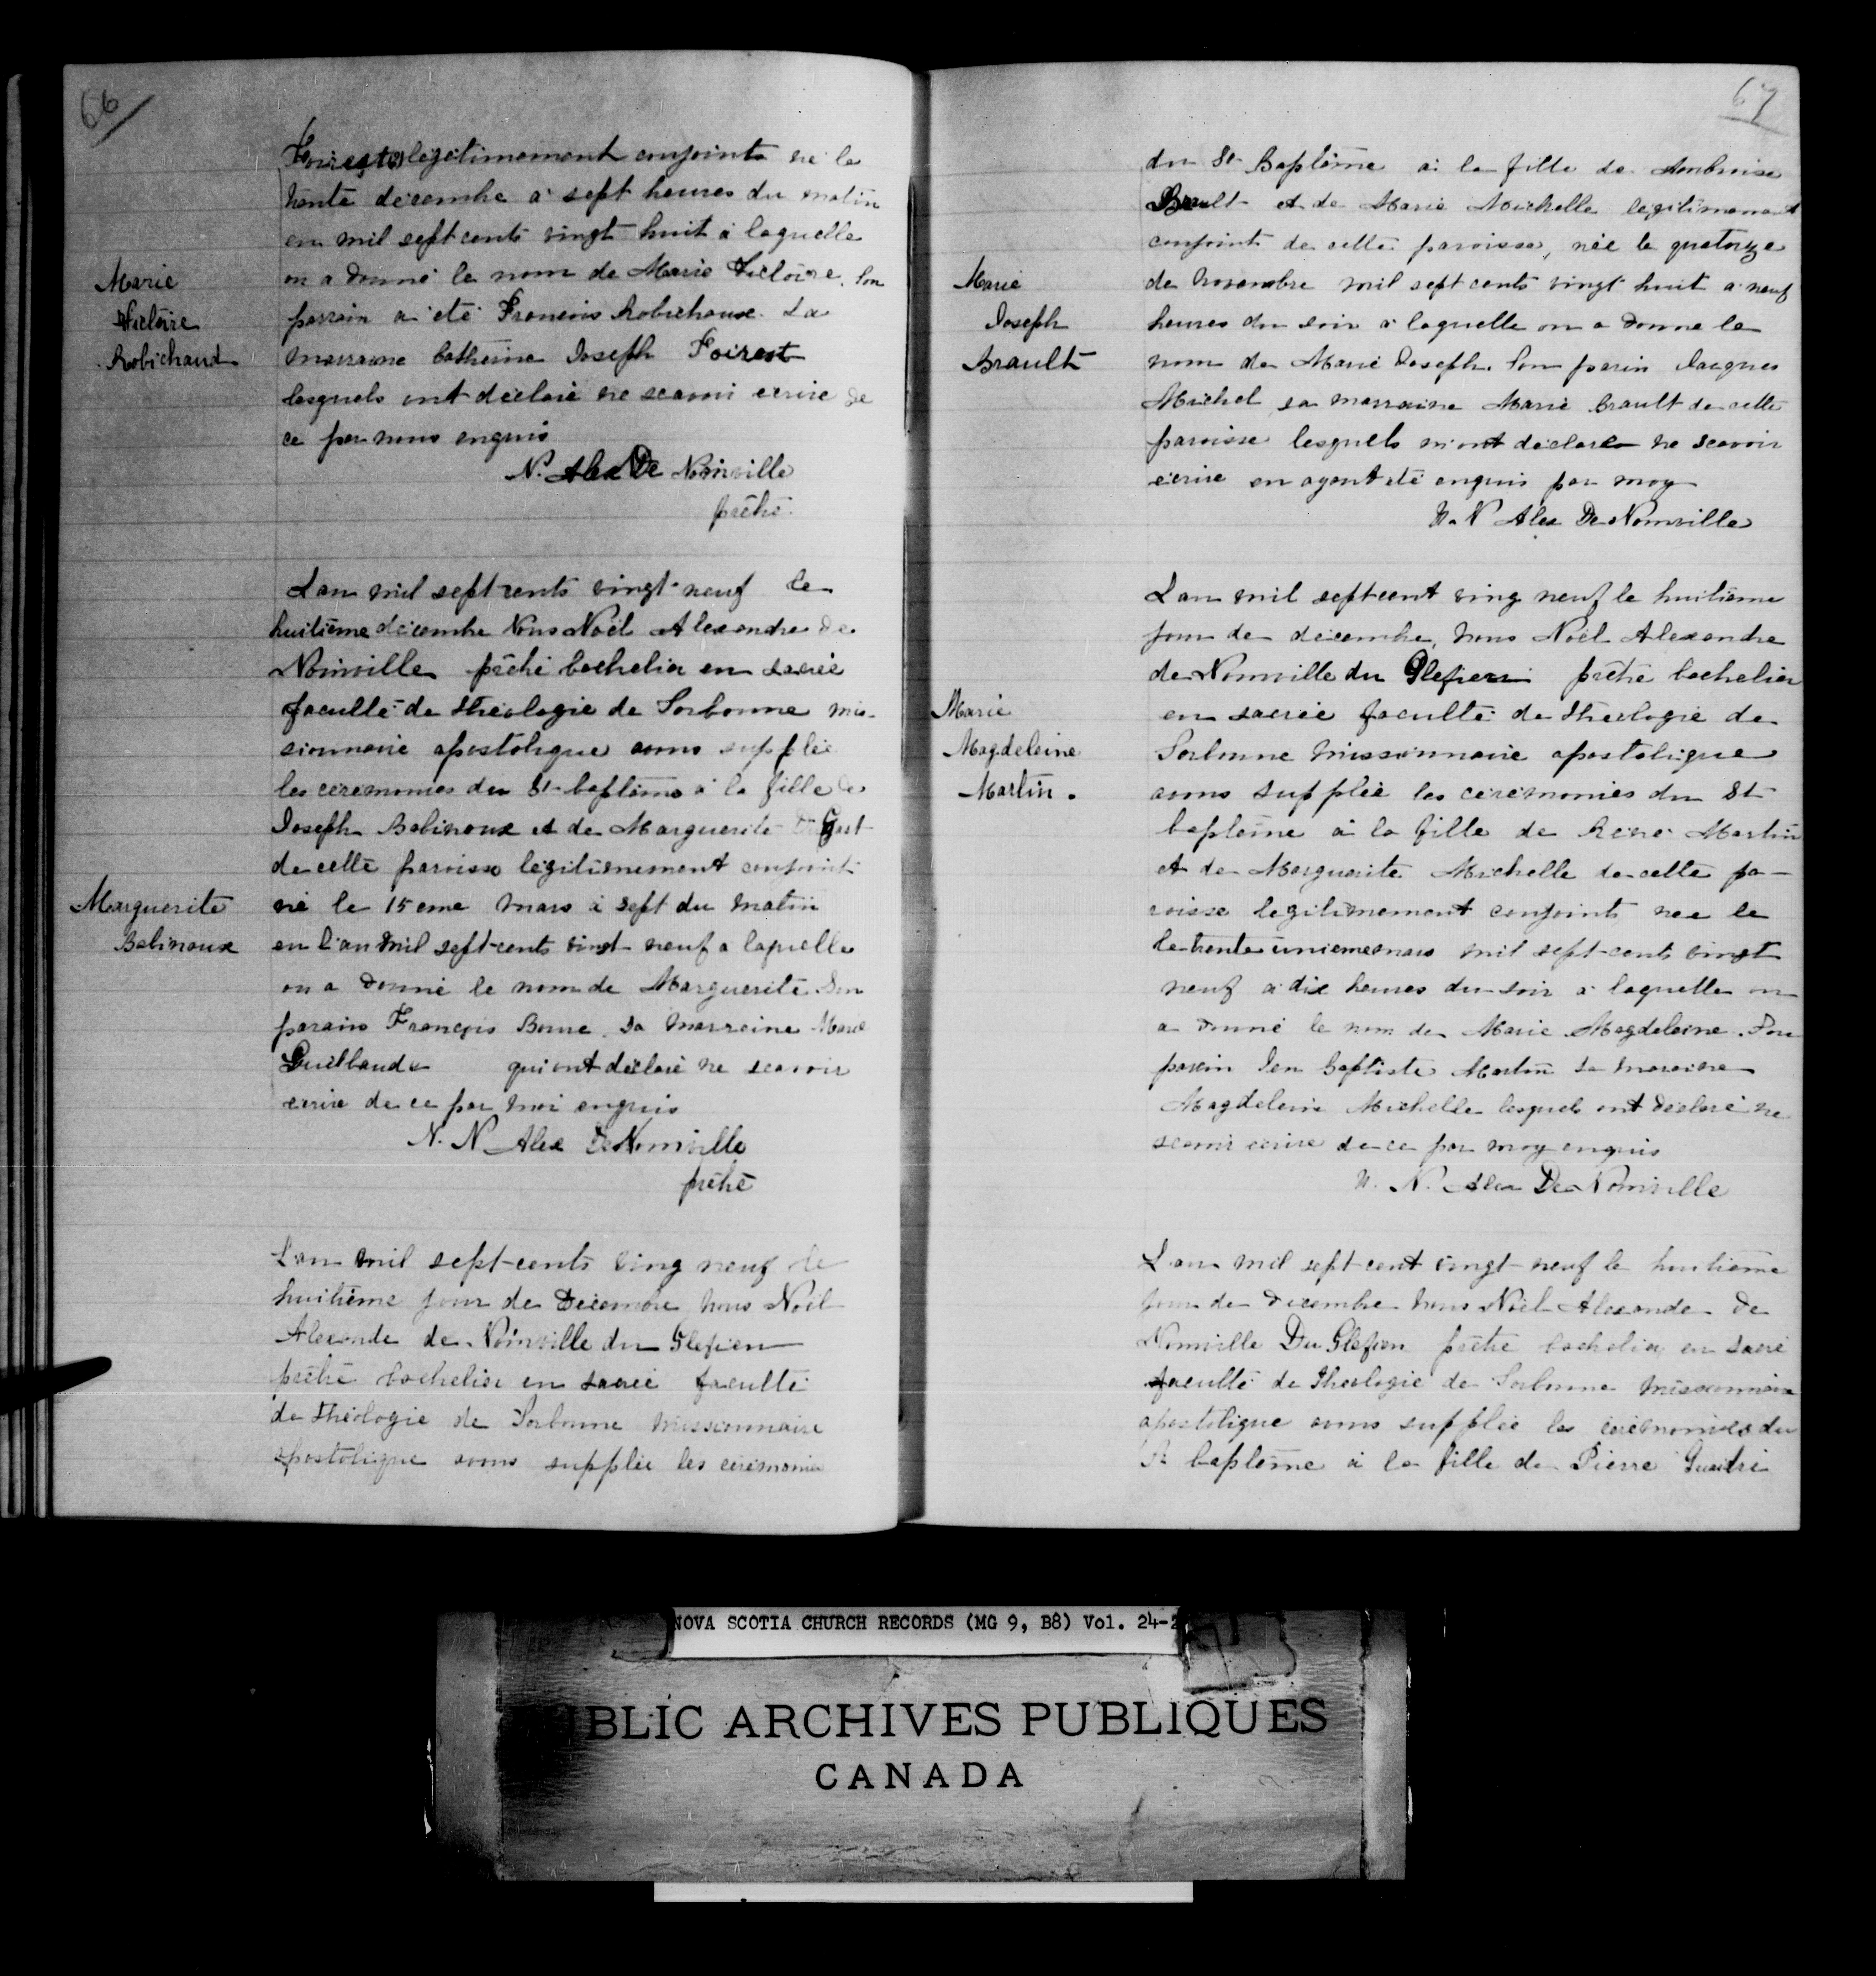 66
Foirest legitimement conjoints né le
trente decembre à sept heures du matin
en mil sept cents vingt huit à laquelle
on a donné le nom de Marie Victoire. Son
parrain a été Francois Robichaux. La
marraine Catherine Joseph Foirest
lesquels ont déclaré ne scavoir ecrire de
ce par nous enquis
N. Alex De Noinville
prêtre.
Marie
Victoire
Robichaud
L an mil sept cents vingt neuf le
huitième décembre Nous Noël Alexandre de
Noinville prêtre bachelier en sacrée
faculté de théologie de Sorbonne mis-
sionnaire apostolique avons supplée
les ceremonies du St baptême à la fille de
Joseph Babinoux et de Marguerite
de cette paroisse légitimement conjoint
né le 15 eme mars à sept du matin
en l'an mil sept-cents vingt neuf a laquelle
on a donné le nom de Marguerite Son
parain François Bourc. Sa marreine Marie
Guilbaude qui ont déclaré ne scavoir
ecrire de ce par moi enquis
N. N Alex De Noinville
prêtre
Marguerite
Babinoux
L'an mil sept-cents ving neuf le
huitième jour de Decembre nous Noël
Alexandre de Noinville du Glefien
prêtre bachelier en sacrée faculté
de théologie de Sorbonne missionnaire
apostolique avons supplée les cérémonies
67
du St Baptême à la fille de Ambroise
Brault et de Marie Michelle legitimement
conjoints de cette paroisse, née le quatorze
de Novembre mil sept cents vingt huit a neuf
heures du soir a laquelle on a donné le
nom de Marie Joseph. Son parin Jacques
Michel sa marraine Marie Brault de cette
paroisse lesquels m'ont déclaré ne scavoir
ecrire en ayant été enquis par moy
N. N Alex De Noinville
Marie
Joseph
Brault
L an mil sept cent ving neuf le huitième
jour de decembre, nous Noël Alexandre
de Noinville du Glefien prêtre bachelier
en sacrée faculté de théologie de
Sorbonne missionnaire apostolique
avons supplée les cérémonies du St
baptême à la fille de René Martin
et de Marguerite Michelle de cette pa-
roisse legitimement conjoints, nee le
le trente unieme mars mil sept-cents vingt
neuf à dix heures du soir a laquelle on
a donné le nom de Marie Magdeleine. Son
parain Jean Baptiste Martin sa maraine
Magdeleine Michelle lesquels ont déclaré ne
scavoir ecrire de ce par moy enquis
N. N. Alex De Noinville
Marie
Magdeleine
Martin.
L an mil sept cent vingt-neuf le huitième
jour de decembre nous Noël Alexandre De
Noinville Du Glefien prêtre bachelier en sacré
faculté de théologie de Sorbonne missionnaire
apostolique avons supplée les cérémonies du
St baptême à la fille de Pierre
NOVA SCOTIA CHURCH RECORDS (MG 9, B8) Vol. 24-2
BLIC ARCHIVES PUBLIQUES
CANADA